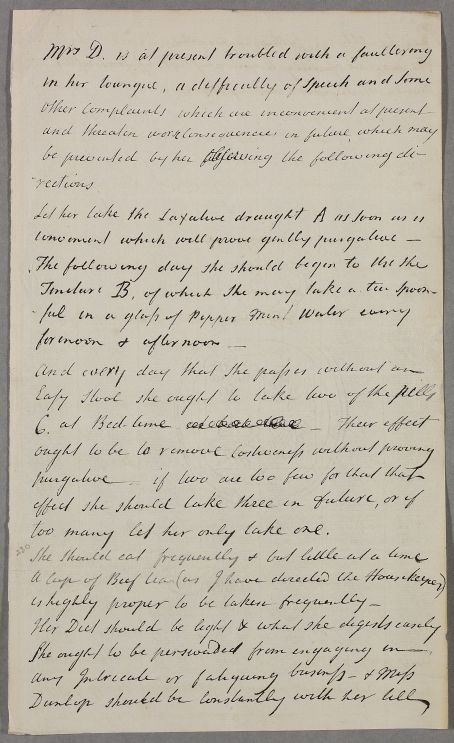 Mrs D. is at present troubled with a faultering
in her toungue, a difficulty of speech and Some
other Complaints which are inconvenient at present
and threaten worse Consequences in future, which may
be prevented by her following the following di-
rections
Let her take the Laxative draught A as soon as is
convenient which will prove gently purgative —
The following day she should begin to Use the
Tincture B, of which She may take a tea spoon-
ful in a glass of Pepper Mint Water every
forenoon & afternoon —
And every day that She passes without an
Easy Stool she ought to take two of the pills
C. at Bed time — Their effect
ought to be to remove Costiveness without proving
purgative — if two are too few for that that
effect she should take three in future, or if
too many let her only take one.
She should eat frequently & but little at a time
A Cup of Beef tea (as I have directed the Housekeeper)
is highly proper to be taken frequently —
Her Diet should be light & what she digests easily
She ought to be perswaded from engaging in —
any Intricate or fatiguing business — & Miss
Dunlop should be constantly with her till